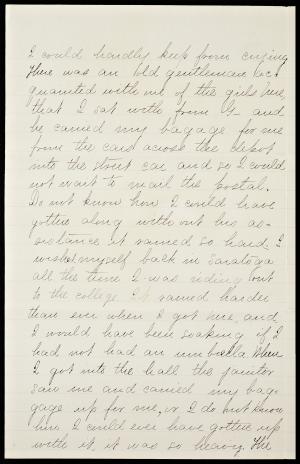 I could hardly keep from crying
There was an old gentleman ac-
quainted with one of the girls here,
that I sat with from G and
he carried my bagage for me
from the cars across the depot
into the street car and so I could
not wait to mail the postal.
Do not know how I could have
gotten along without his as-
sistance it rained so hard. I
wished myself back in Saratoga
all the time I was riding out
to the college. It rained harder
than ever when I got here, and
I would have been soaking if I
had not had an umbrella When
I got into the hall the janitor
saw me and carried my bag-
gage up for me, or I do not know
how I could ever have gotten up
with it, it was so heavy. The